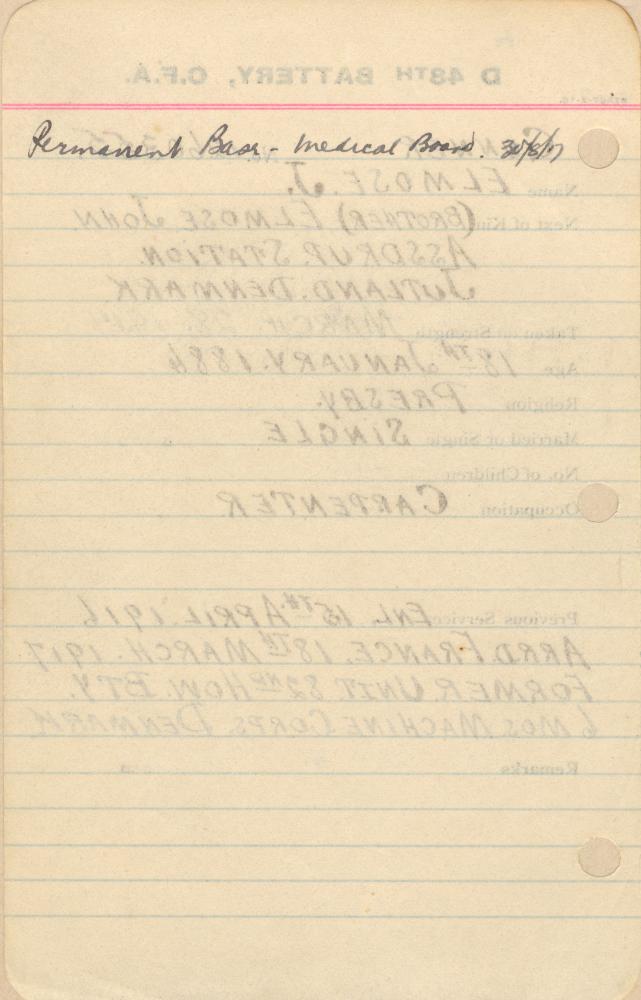 Permanent Base - Medical Board. 30/8/17
D 48TH BATTERY, C.F.A.
Name ELMOSE. J.
Next of Kin (BROTHER) ELMOSE JOHN
ASSDRUP. STATION.
JUTLAND. DENMARK
Taken on Strength MARCH. 28.
Age 18TH JANUARY. 1886
Religion PRESBY.
Married or Single SINGLE
No. of Children
Occupation CARPENTER
Previous Service ENL. 15TH APRIL. 1916
ARRD. FRANCE. 18TH MARCH. 1917
FORMER UNIT 82ND HOW. BTY.
6 MOS. MACHINE CORPS. DENMARK
Remarks